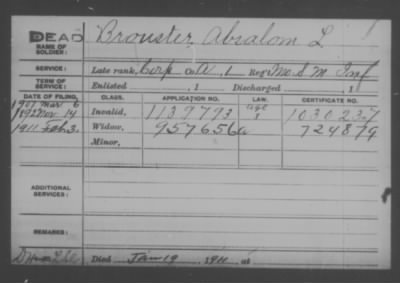 DEAD
NAME OF SOLDIER: Brouster, Absalom L.
SERVICE: Late rank, Corp Co. A, 1 Reg't Mo. S. M. Inf
TERM OF SERVICE: Enlisted , 1 Discharged , 1
DATE OF FILING. CLASS. APPLICATION NO. LAW. CERTIFICATE NO.
1907 Mar 6
1892 Nov 14 Invalid, 1139793 age 1030237
1911 Feb 3. Widow, 957656 724879
Minor,
ADDITIONAL SERVICES:
REMARKS:
Died Jan 19, 1911, at